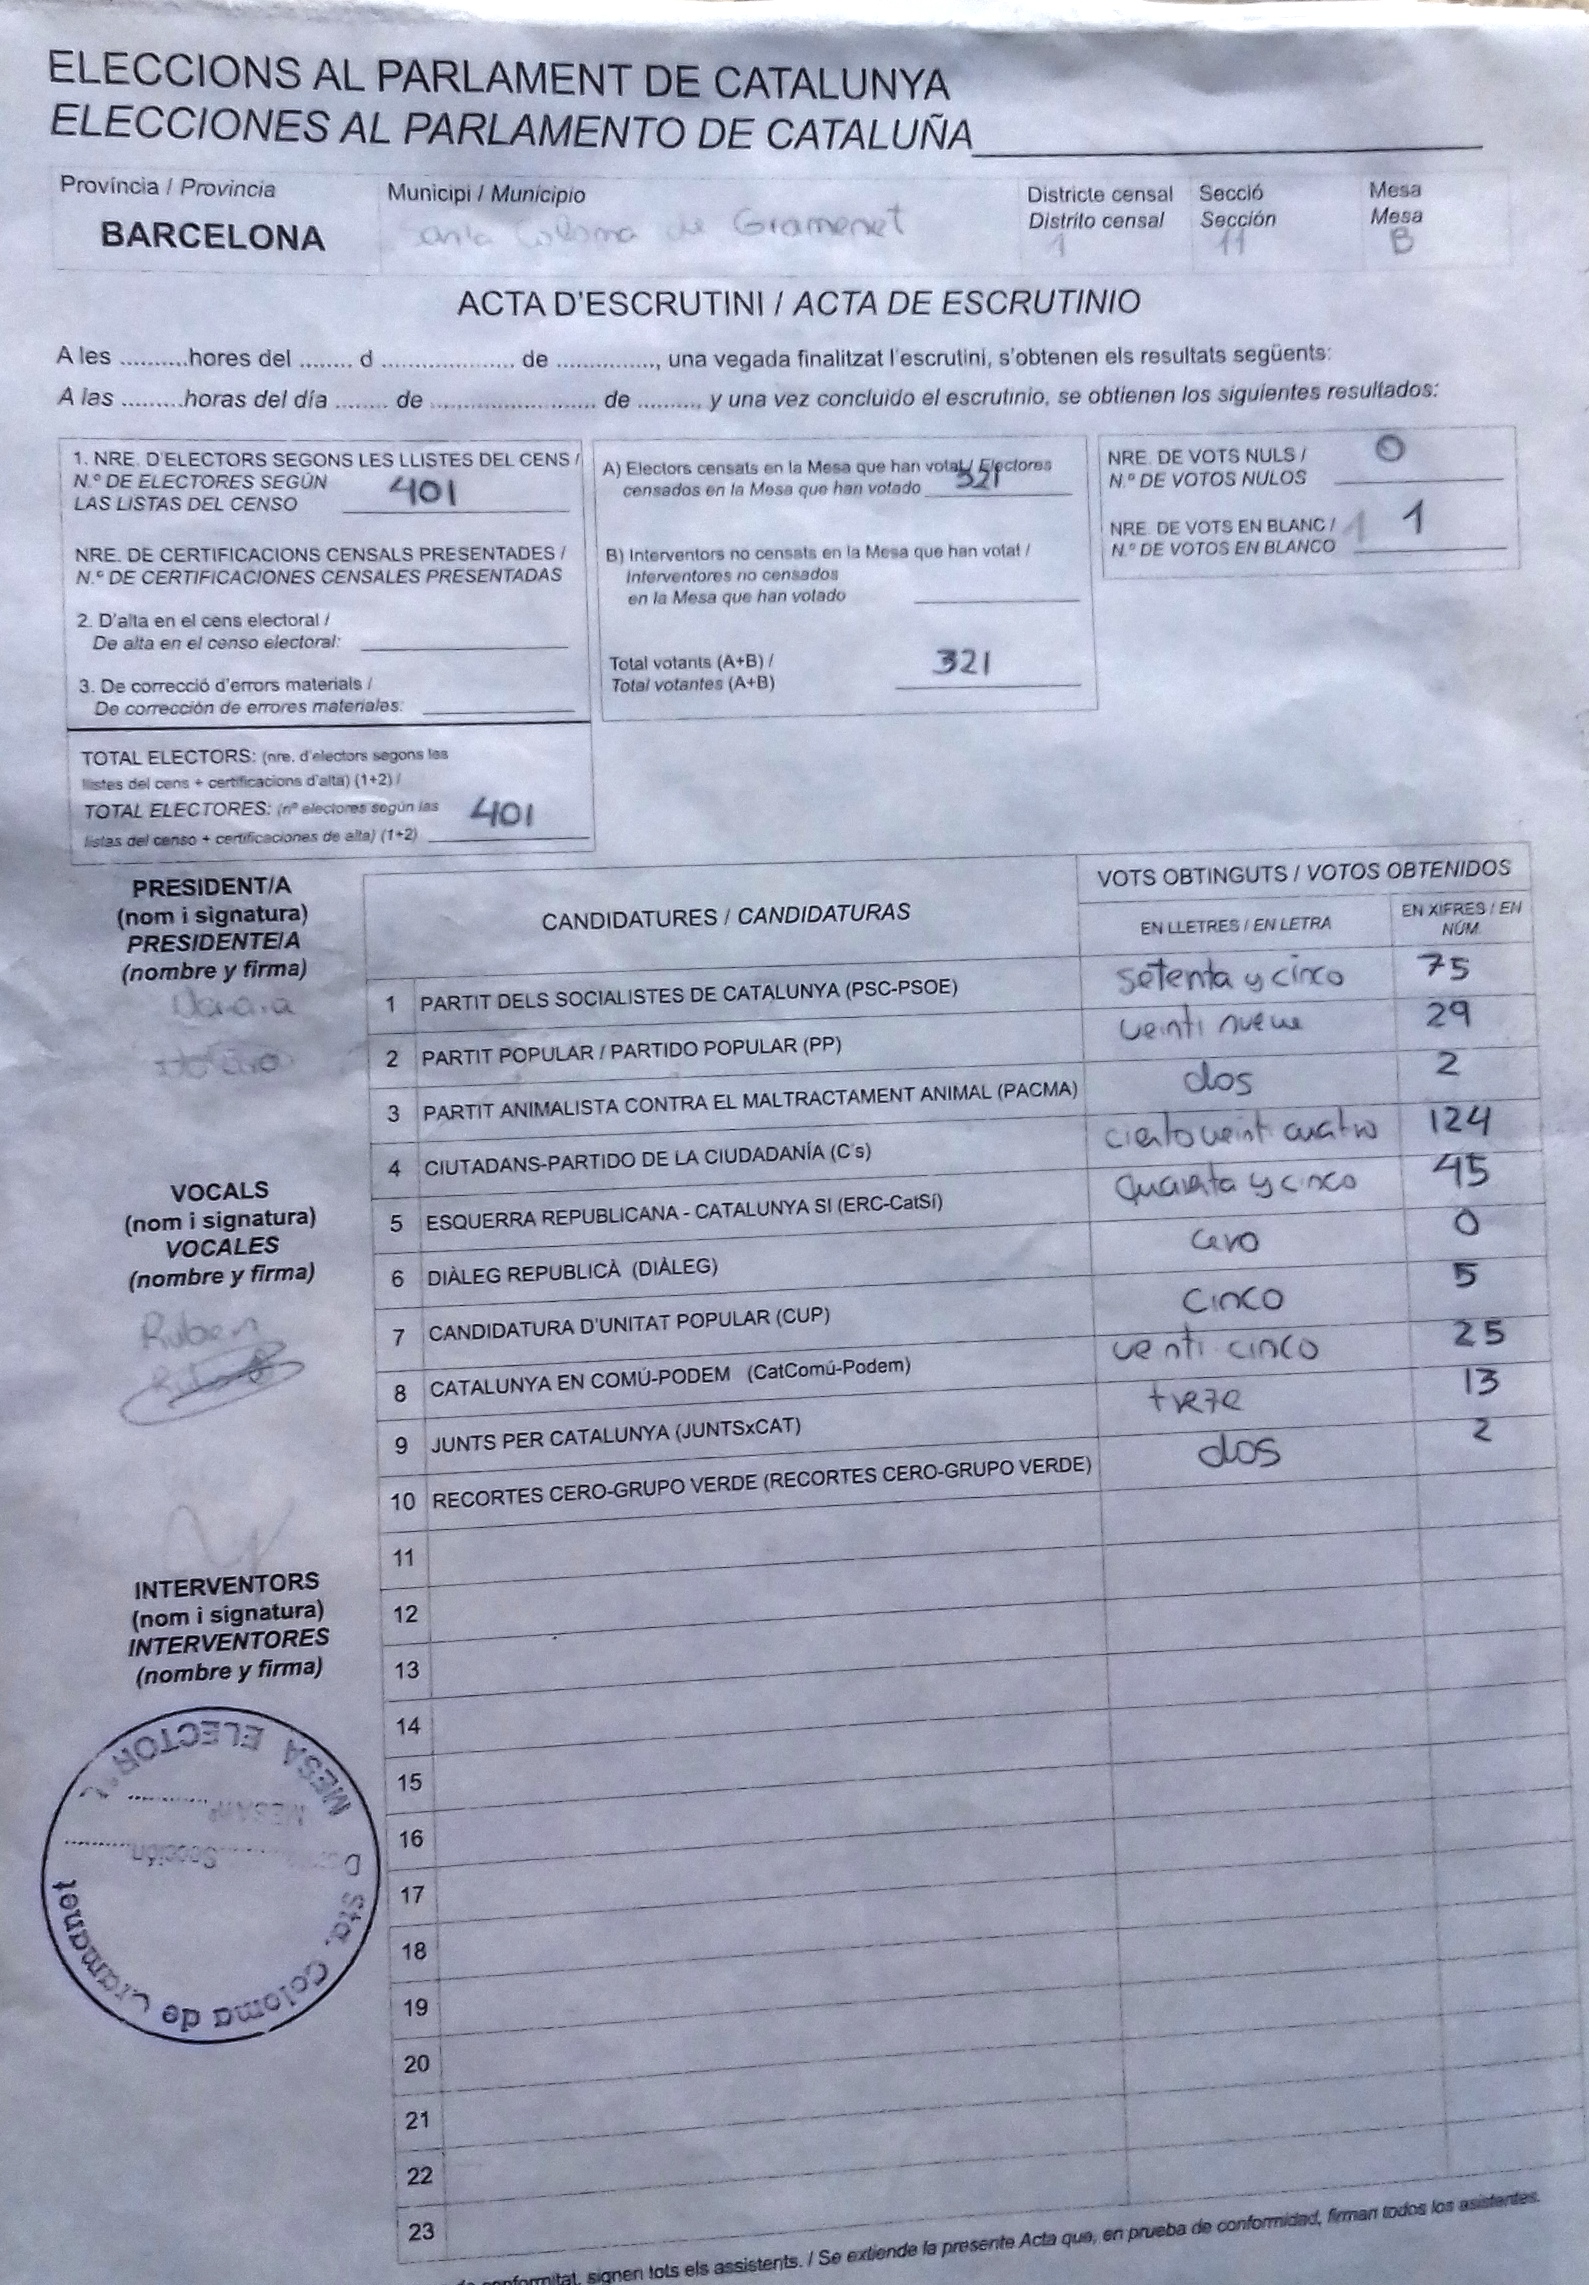 ELECCIONS AL PARLAMENT DE CATALUNYA
ELECCIONES AL PARLAMENTO DE CATALUÑA
Província / Provincia
BARCELONA
Municipi / Municipio
de Gramenet
Districte censal
Distrito censal
1
Secció
Sección
11
Mesa
Mesa
B
ACTA D'ESCRUTINI / ACTA DE ESCRUTINIO
A les ..........hores del ........ d .................... de ..............., una vegada finalitzat l'escrutini, s'obtenen els resultats següents:
A las .........horas del día ........ de ......................... de ........., y una vez concluido el escrutinio, se obtienen los siguientes resultados:
1. NRE. D'ELECTORS SEGONS LES LLISTES DEL CENS /
N.º DE ELECTORES SEGÚN
LAS LISTAS DEL CENSO 401
NRE. DE CERTIFICACIONS CENSALS PRESENTADES /
N.º DE CERTIFICACIONES CENSALES PRESENTADAS
2. D'alta en el cens electoral /
De alta en el censo electoral:
3. De correcció d'errors materials /
De corrección de errores materiales:
TOTAL ELECTORS: (nre. d'electors segons les
llistes del cens + certificacions d'alta) (1+2) /
TOTAL ELECTORES: (nº electores según las
listas del censo + certificaciones de alta) (1+2) 401
A) Electors censats en la Mesa que han votat / Electores
censados en la Mesa que han votado 321
B) Interventors no censats en la Mesa que han votat /
Interventores no censados
en la Mesa que han votado
Total votants (A+B) /
Total votantes (A+B) 321
NRE. DE VOTS NULS /
N.º DE VOTOS NULOS 0
NRE. DE VOTS EN BLANC /
N.º DE VOTOS EN BLANCO 1
PRESIDENT/A
(nom i signatura)
PRESIDENTE/A
(nombre y firma)
VOCALS
(nom i signatura)
VOCALES
(nombre y firma)
Ruben
INTERVENTORS
(nom i signatura)
INTERVENTORES
(nombre y firma)
MESA ELECTOR
MESA nº
Sección
Sta. Coloma de Gramanet
CANDIDATURES / CANDIDATURAS
VOTS OBTINGUTS / VOTOS OBTENIDOS
EN LLETRES / EN LETRA
EN XIFRES / EN
NÚM.
1 PARTIT DELS SOCIALISTES DE CATALUNYA (PSC-PSOE) setenta y cinco 75
2 PARTIT POPULAR / PARTIDO POPULAR (PP) veinti nueve 29
3 PARTIT ANIMALISTA CONTRA EL MALTRACTAMENT ANIMAL (PACMA) dos 2
4 CIUTADANS-PARTIDO DE LA CIUDADANÍA (C's) ciento veinti cuatro 124
5 ESQUERRA REPUBLICANA - CATALUNYA SI (ERC-CatSí) quarenta y cinco 45
6 DIÀLEG REPUBLICÀ (DIÀLEG) cero 0
7 CANDIDATURA D'UNITAT POPULAR (CUP) cinco 5
8 CATALUNYA EN COMÚ-PODEM (CatComú-Podem) venti cinco 25
9 JUNTS PER CATALUNYA (JUNTSxCAT) treze 13
10 RECORTES CERO-GRUPO VERDE (RECORTES CERO-GRUPO VERDE) dos 2
11
12
13
14
15
16
17
18
19
20
21
22
23
conformitat, signen tots els assistents. / Se extiende la presente Acta que, en prueba de conformidad, firman todos los asistentes.